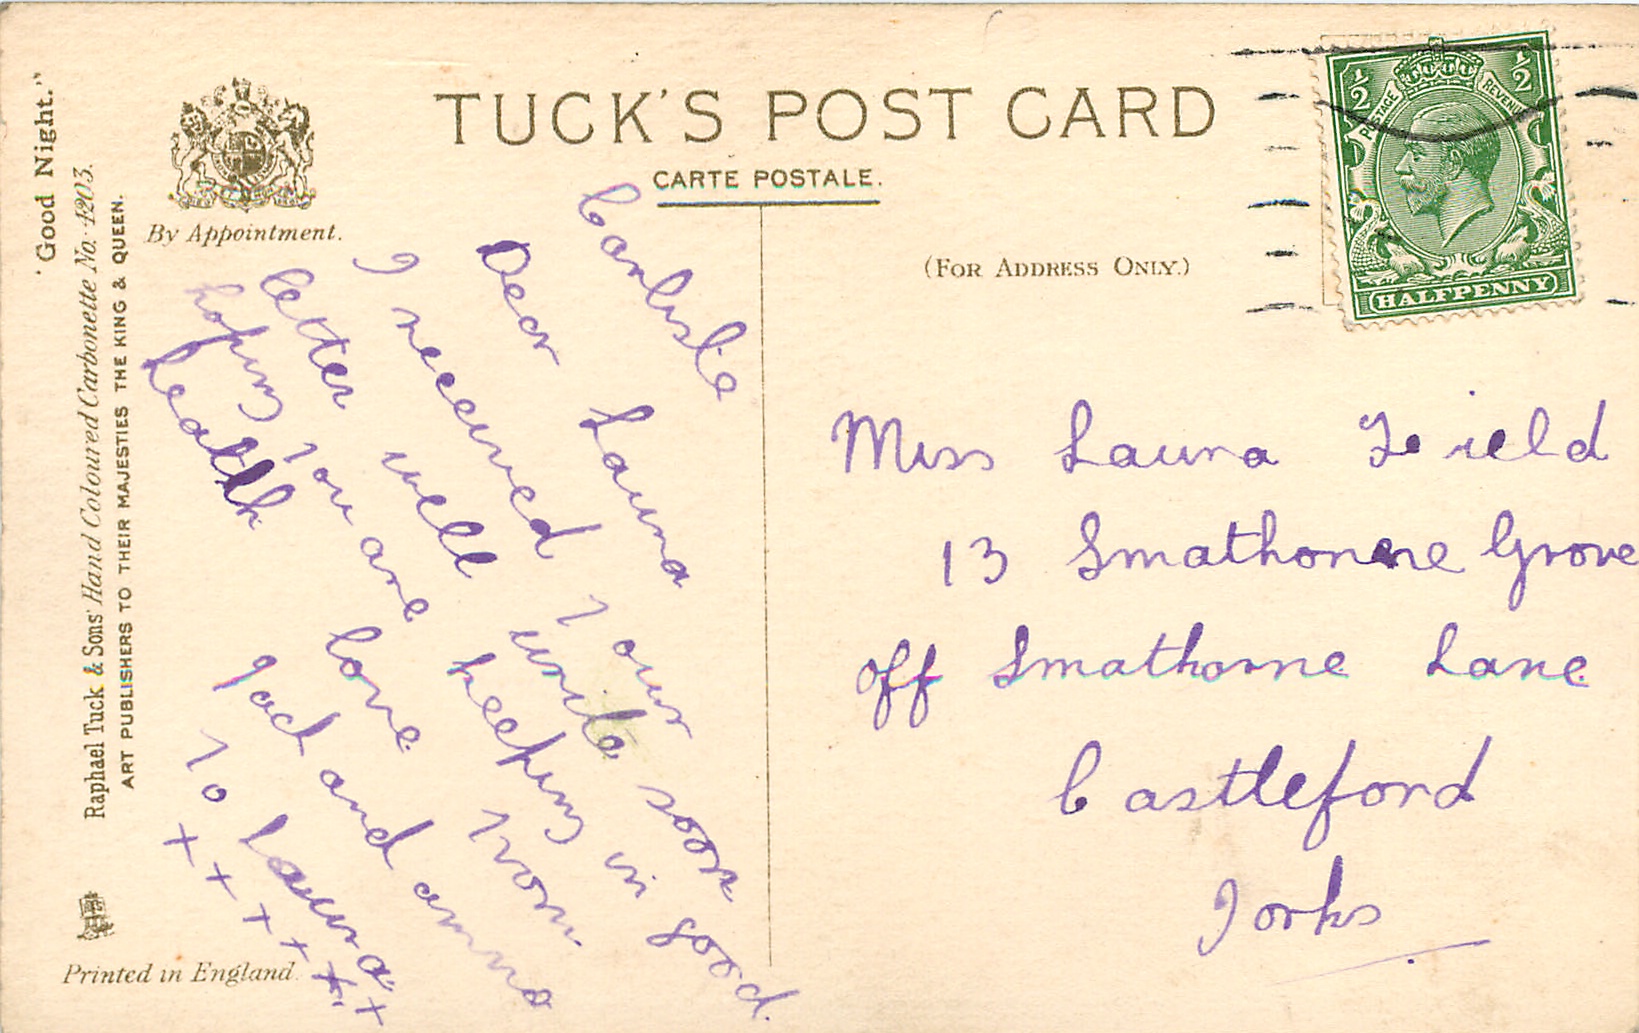 TUCK'S POST CARD
CARTE POSTALE.
(FOR ADDRESS ONLY.)
By Appointment.
"Good Night."
Raphael Tuck & Sons' Hand Coloured Carbonette No. 4203.
ART PUBLISHERS TO THEIR MAJESTIES THE KING & QUEEN.
Printed in England.
½ ½
POSTAGE REVENUE
HALFPENNY
Carlisle
Dear Laura
I received your
letter will write soon
hoping you are keeping in good
health
love from
Jack and
to Laura
x x x x x x
Miss Laura Field
13 Smathorne Grove
off Smathorne Lane
Castleford
Yorks